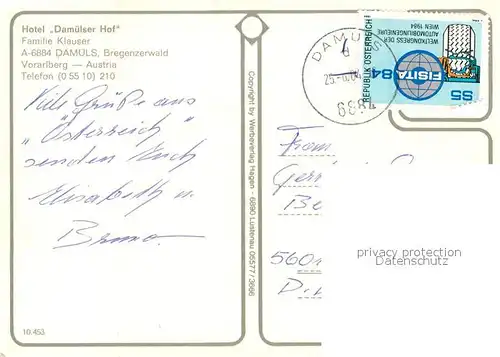 Hotel „Damülser Hof"
Familie Klauser
A-6884 DAMÜLS, Bregenzerwald
Vorarlberg — Austria
Telefon (0 55 10) 210
Viele Grüße aus
"Österreich"
senden Euch
Elisabeth u.
Bruno.
10.453
Copyright by Werbeverlag Hagen - 6890 Lustenau 05577/3666
DAMÜLS
6884
REPUBLIK ÖSTERREICH
WELTKONGRESS DER
AUTOMOBILINGENIEURE
WIEN 1984
FISITA 84
S5
Fram
560
privacy protection
Datenschutz